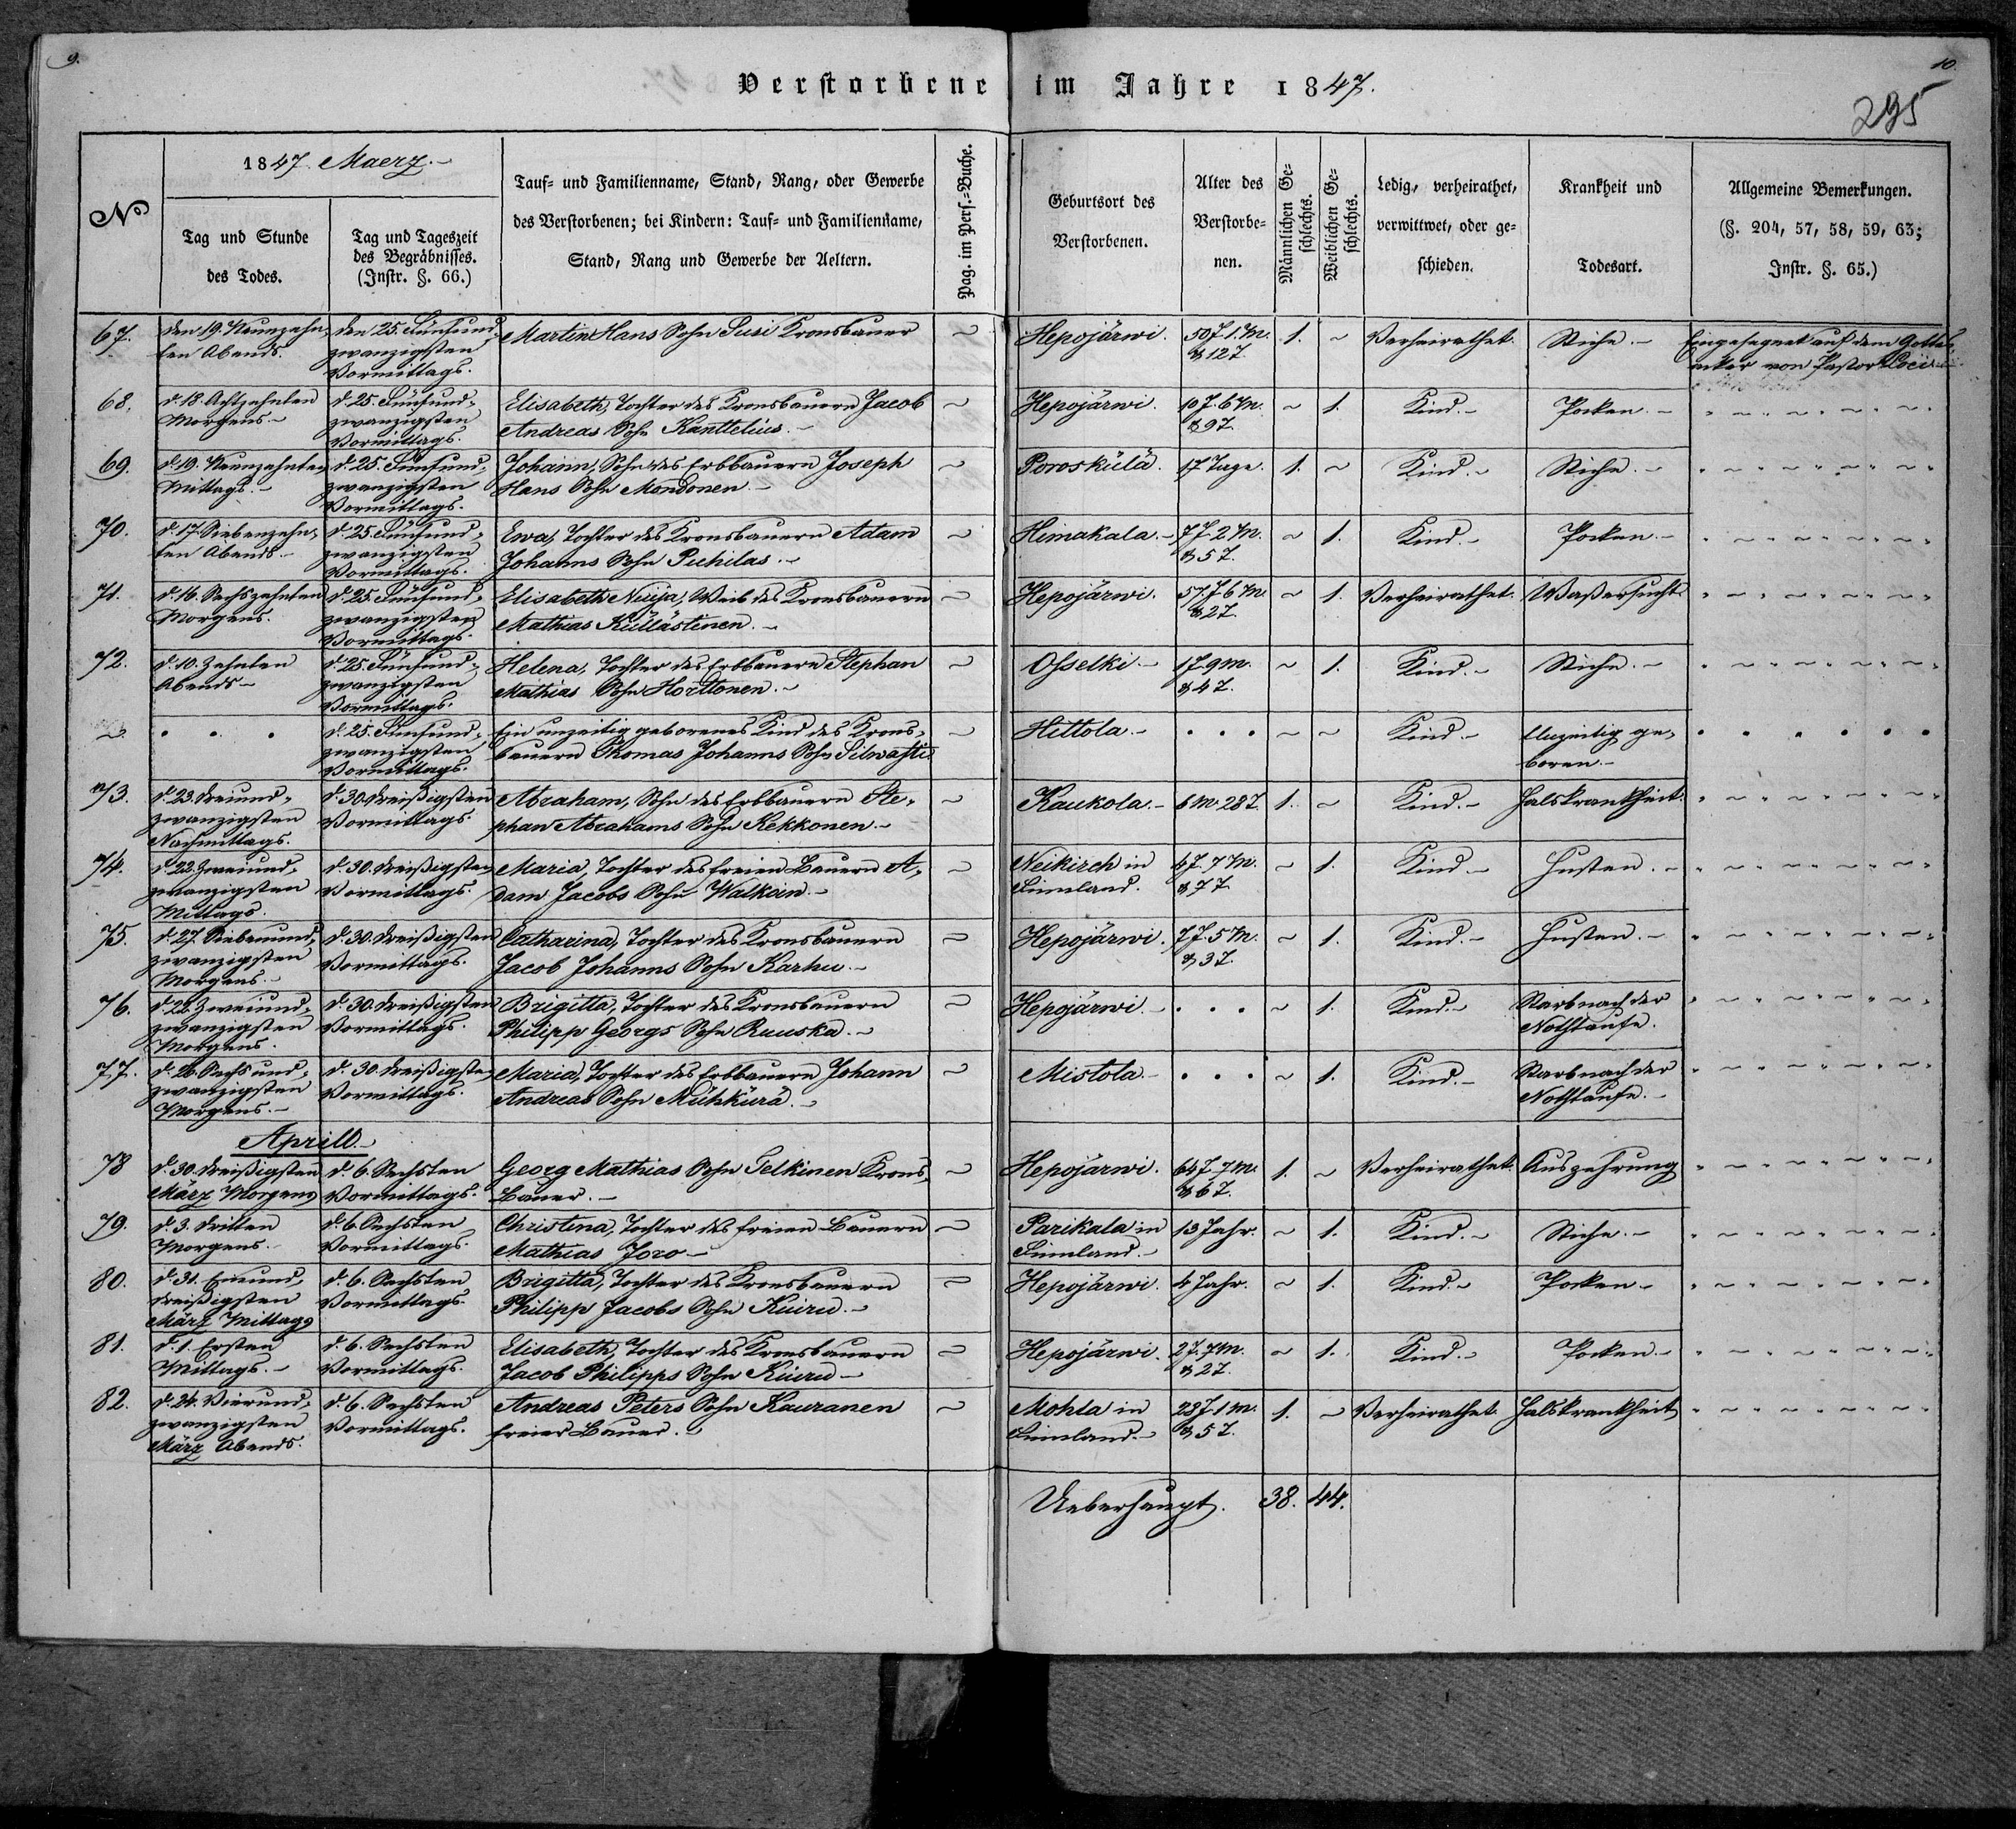 9.
10.
Verstorbene im Jahre 1847.
295
No
1847 Maerz.
Tag und Stunde
des Todes.
Tag und Tageszeit
des Begräbnisses.
(Instr. §. 66.)
Tauf= und Familienname, Stand, Rang, oder Gewerbe
des Verstorbenen; bei Kindern: Tauf= und Familienname,
Stand, Rang und Gewerbe der Aeltern.
Pag. im Pers.=Buche.
Geburtsort des
Verstorbenen.
Alter des
Verstorbe=
nen.
Männlichen Ge=
schlechts.
Weiblichen Ge=
schlechts.
Ledig, verheirathet,
verwittwet, oder ge=
schieden.
Krankheit und
Todesart.
Allgemeine Bemerkungen.
(§. 204, 57, 58, 59, 63;
Instr. §. 65.)
67. den 19. Neunzehn- den 25. Fünfund- Martin Hans Sohn Susi Kronsbauer ~ Hepojärwi. 50 J. 1 M. 1. ~ Verheirathet. Stiche. Eingesegnet auf dem Gottes-
ten Abends. zwanzigsten & 12 T. acker von Pastor
Vormittags.
68. d. 18. Achtzehnten d. 25. Fünfund- Elisabeth, Tochter des Kronsbauern Jacob ~ Hepojärwi. 10 J. 6 M. ~ 1. Kind. Pocken.
Morgens zwanzigsten Andreas Sohn Kanttelius. & 9 T.
Vormittags.
69. d. 19. Neunzehnten d. 25. Fünfund- Johann, Sohn des Erbbauern Joseph ~ Poroskülä. 17 Tage. 1. ~ Kind. Stiche.
Mittags. zwanzigsten Hans Sohn Mondonen.
Vormittags.
70. d. 17. Siebenzehn- d. 25. Fünfund- Ewa, Tochter des Kronsbauern Adam ~ Himakala. 7 J. 2 M. ~ 1. Kind. Pocken.
ten Abends. zwanzigsten Johanns Sohn Puhilas. & 5 T.
Vormittags.
71. d. 16. Sechszehnten d. 25. Fünfund- Elisabeth Nuija, Weib des Kronsbauern ~ Hepojärwi. 57 J. 6 M. ~ 1. Verheirathet. Waßersucht
Morgens. zwanzigsten Mathias Küllästinen. & 2 T.
Vormittags.
72. d. 10. Zehnten d. 25. Fünfund- Helena, Tochter des Erbbauern Stephan ~ Osselki. 1 J. 9 M. ~ 1. Kind. Stiche.
Abends zwanzigsten Mathias Sohn Horttonen. & 4 T.
Vormittags.
~ . . . d. 25. Fünfund- Ein unzeitig geborenes Kind des Krons- ~ Hittola. . . . ~ ~ Kind. Unzeitig ge-
zwanzigsten bauern Thomas Johanns Sohn Silwasti. boren.
Vormittags.
73. d. 23. Dreiund- d. 30. Dreißigsten Abraham, Sohn des Erbbauern Ste- ~ Kaukola. 6 M. 28 T. 1. ~ Kind. Halskrankheit.
zwanzigsten Vormittags. phan Abrahams Sohn Kekkonen.
Nachmittags.
74. d. 22. Zweiund- d. 30. Dreißigsten Maria, Tochter des freien Bauern A- ~ Neikirch in 4 J. 7 M. ~ 1. Kind Husten.
zwanzigsten Vormittags dam Jacobs Sohn Walkoin. Finnland. & 7 T.
Mittags.
75. d. 27. Siebenund- d. 30. Dreißigsten Catharina, Tochter des Kronsbauern ~ Hepojärwi. 7 J. 5 M. ~ 1. Kind. Husten.
zwanzigsten Vormittags. Jacob Johanns Sohn Karhu. & 3 T.
Morgens.
76. d. 22. Zweiund- d. 30. Dreißigsten Brigitta, Tochter des Kronsbauern ~ Hepojärwi. . . . ~ 1. Kind. Starb nach der
zwanzigsten Vormittags. Philipp Georgs Sohn Ruuska. Nothtaufe.
Morgens.
77. d. 26. Sechs und- d. 30. Dreißigsten Maria, Tochter des Erbbauern Johann ~ Mistola. . . . ~ 1. Kind. Starb nach der
zwanzigsten Vormittags. Andreas Sohn Mühkürä. Nothtaufe.
Morgens.
Aprill.
78 d. 30. Dreißigsten d. 6. Sechsten Georg Mathias Sohn Telkinen Krons- ~ Hepojärwi. 64 J. 7 M. 1. ~ Verheirathet. Auszehrung
März Morgens Vormittags. Bauer. & 6 T.
79. d. 3. Dritten d. 6. Sechsten Christina, Tochter des freien Bauern ~ Parikala in 13 Jahr. ~ 1. Kind. Stiche.
Morgens. Vormittags. Mathias Joro Finnland.
80. d. 31. Einund- d. 6. Sechsten Brigitta, Tochter des Kronsbauern ~ Hepojärwi. 4 Jahr. ~ 1. Kind. Pocken
dreißigsten Vormittags. Philipp Jacobs Sohn Kuiru.
März Mittags
81. d. 1. Ersten d. 6. Sechsten Elisabeth, Tochter des Kronsbauern ~ Hepojärwi. 2 J. 7 M. ~ 1. Kind. Pocken.
Mittags. Vormittags. Jacob Philipps Sohn Kuiru & 2 T.
82. d. 24. Vierund- d. 6. Sechsten Andreas Peters Sohn Kauranen ~ Mohla in 28 J. 1 M. 1. ~ Verheirathet. Halskrankheit
zwanzigsten Vormittags. freier Bauer. Finnland. & 5 T.
März Abends.
Ueberhaupt. 38. 44.